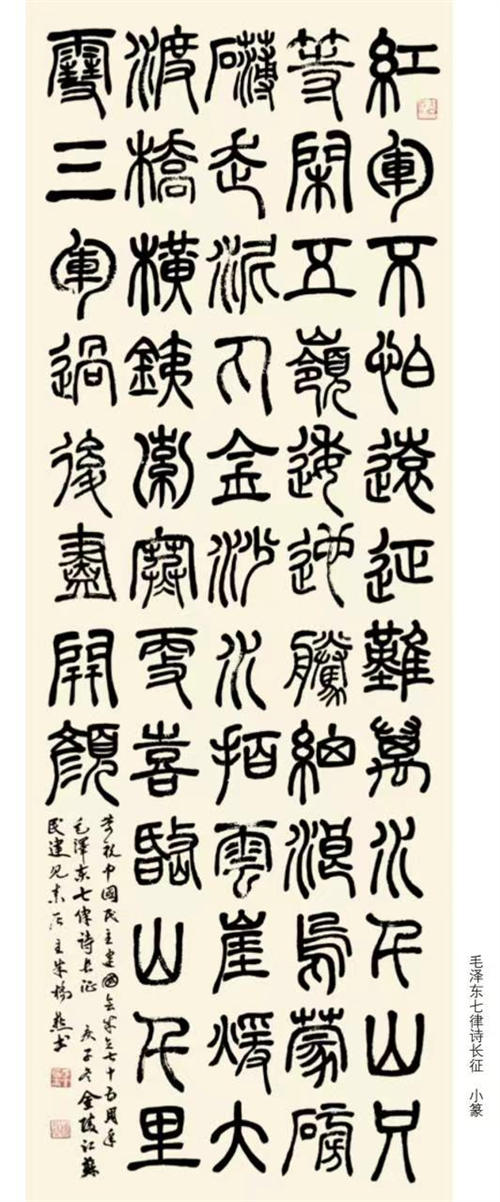 紅軍不怕遠征難萬水千山只
等閑五嶺逶迤騰細浪烏蒙磅
礴走泥丸金沙水拍雲崖煖大
渡橋橫銕索寒更喜岷山千里
雪三軍過後盡開顏
祝中國民主建國会成立七十五周年
毛澤東七律诗长征 庚子冬金陵江蘇
民建
毛泽东七律诗长征 小篆